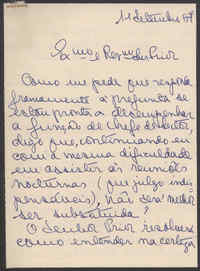 11 Setembro 67
Ex.mo e Rev.mo Sr. Prior
Como me pede que responda
francamente à pregunta se
estou pronta a desempenhar
a função de chefe de sector,
digo que, continuando eu
com a mesma dificuldade
em assistir às reuniões
nocturnas (que julgo indis
pensáveis), não será melhor
ser substituida?
O Senhor Prior resolverá
como entender na certeza